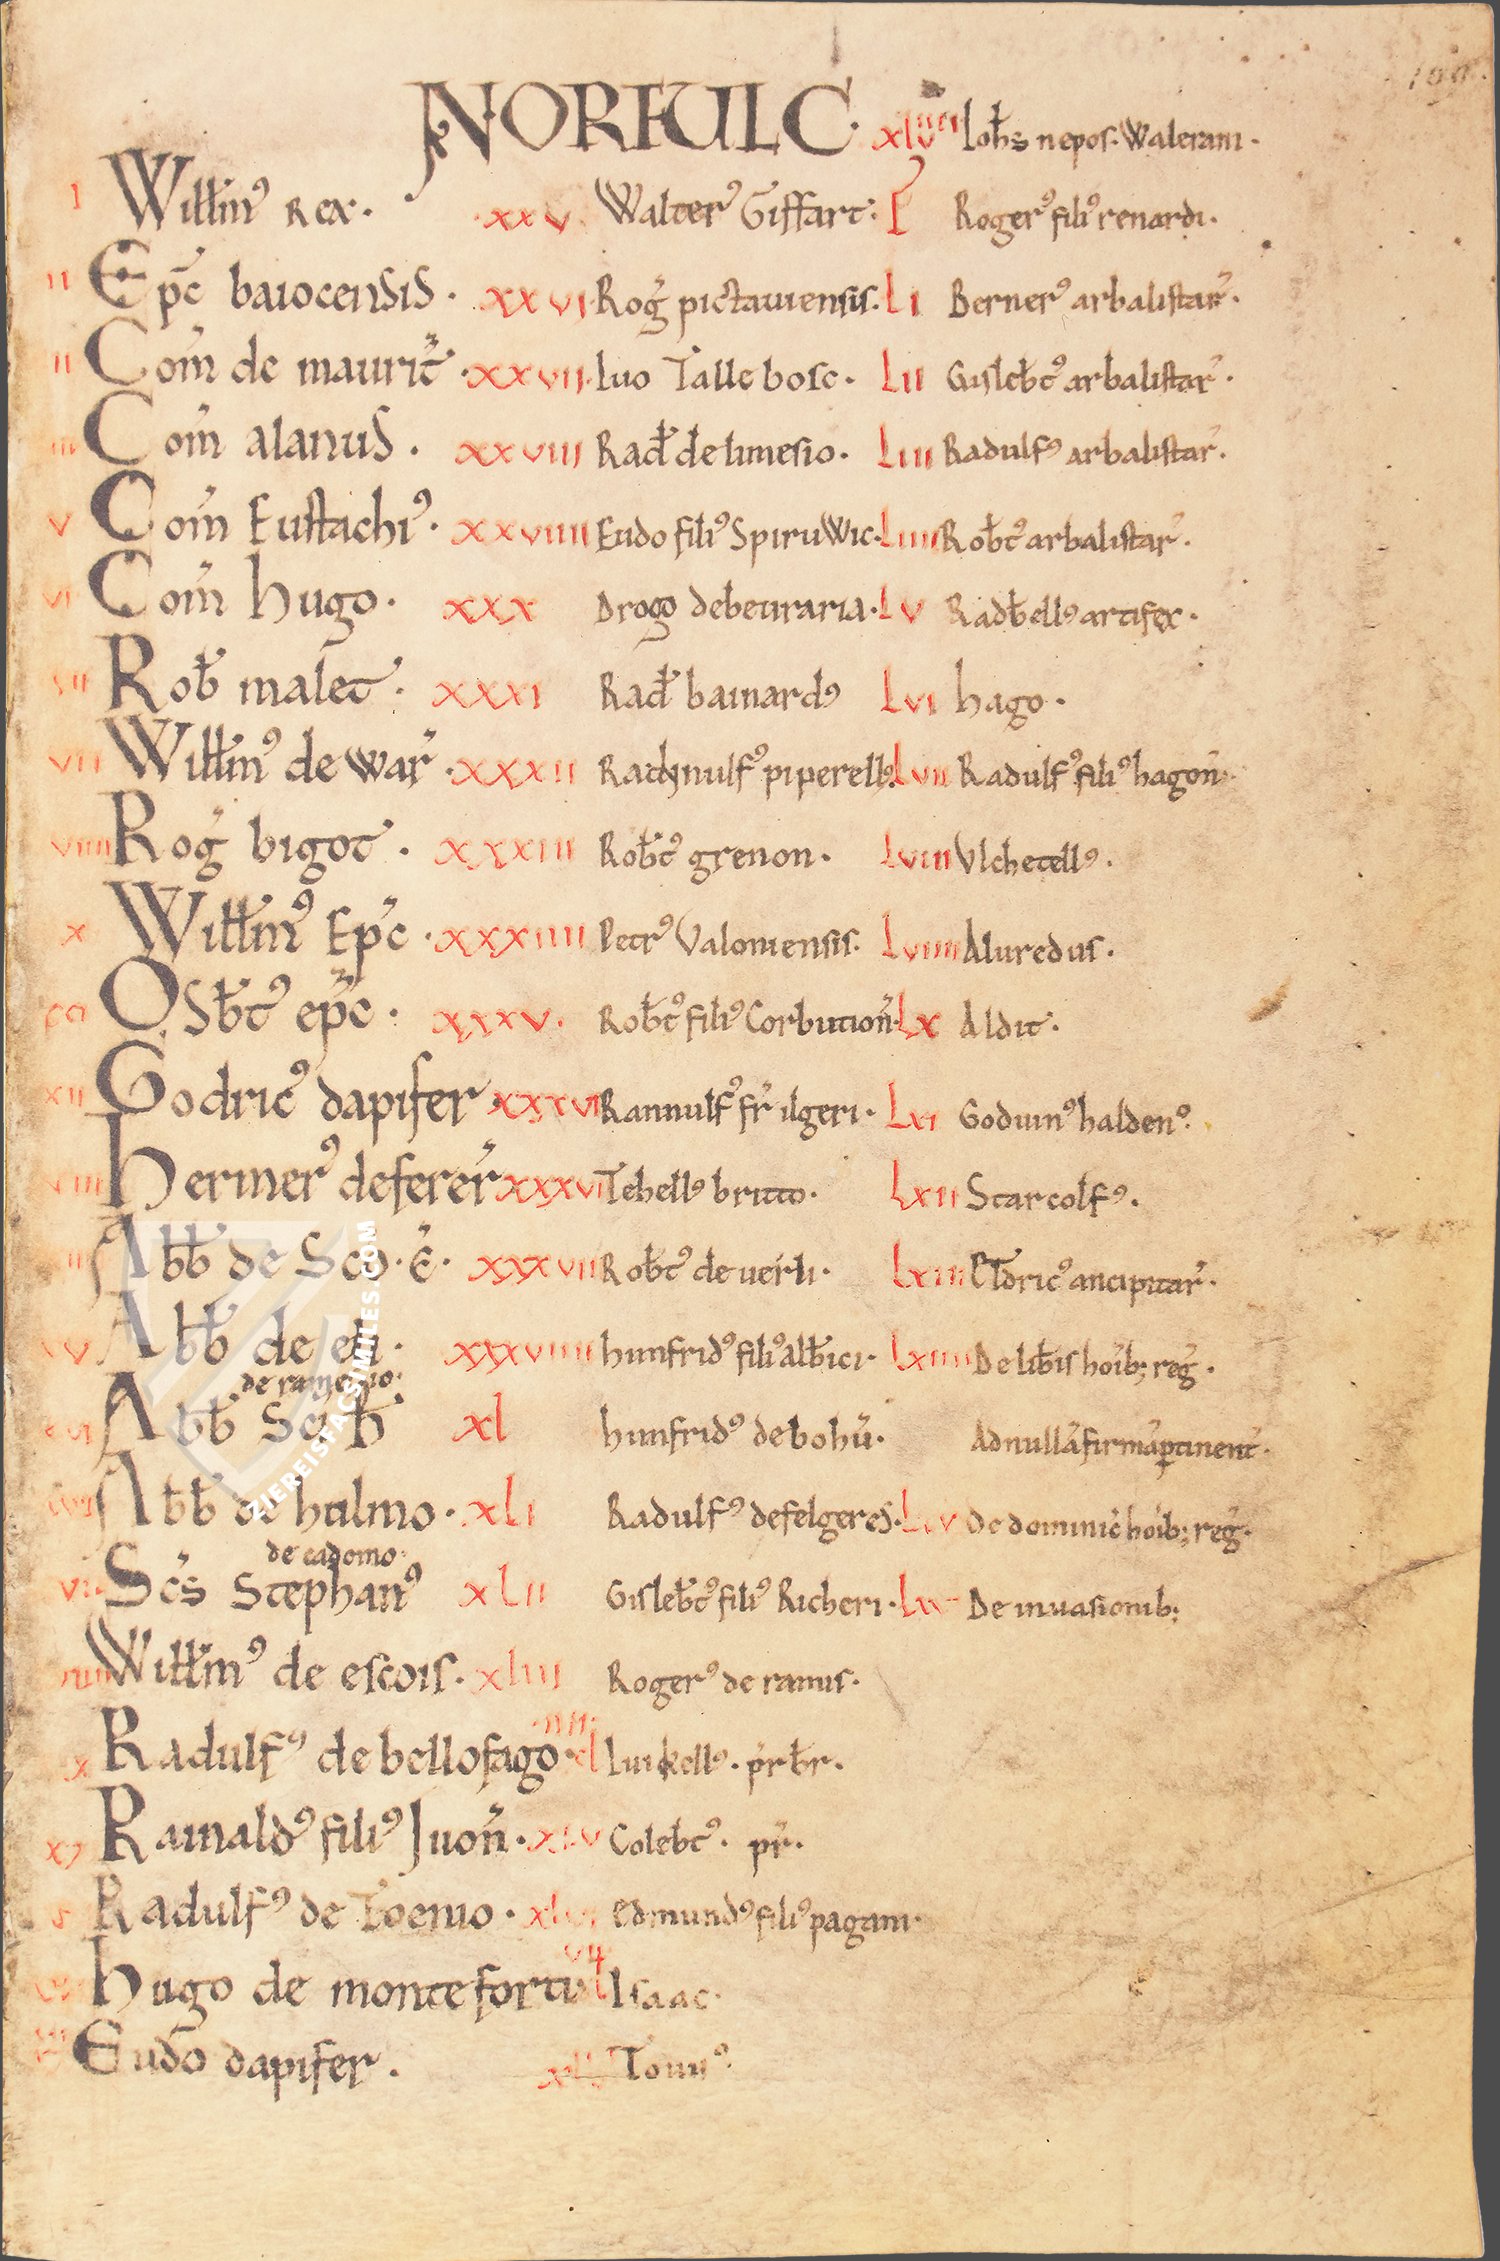 NORFULC.
I Willm̄ꝰ Rex.
II Ep̄c baiocensis.
II Com̄ de maurit̄.
III Com̄ alanus.
V Com̄ Eustachiꝰ.
VI Com̄ hugo.
VII Rob̄ malet.
VII Willm̄ꝰ de War̄.
VIIII Roḡ bigot.
X Willm̄ꝰ Ep̄c.
Osb̄tꝰ ep̄c.
XII Godricꝰ dapifer.
hermerꝰ deferer̄
Abb̄ de Sc̄o. e.
Abb̄ de eli.
de rameseio.
Abb̄ Sc̄i b̄
Abb̄ de hulmo.
de cadomo.
Sc̄s Stephanꝰ
Willm̄ꝰ de escois.
Radulfꝰ de bellofago.
Rainaldꝰ filiꝰ Iuon̄.
Radulfꝰ de Toenio.
hugo de monte forti
Eudo dapifer.
XXV Walterꝰ Giffart.
XXVI. Rog̃ pictauiensis.
XXVII. Iuo Tallebosc.
XXVIII Rad̄ de limesio.
XXVIIII Eudo filiꝰ SpiruWic.
XXX Drogo debeuraria.
XXXI Rad̄ bainardꝰ
XXXII Radnulfꝰ piperellꝰ.
XXXIII Rob̄tꝰ grenon.
XXXIIII Petrꝰ Valoniensis.
XXXV. Rob̄tꝰ filiꝰ Corbution̄.
XXXVI Rannulfꝰ fr̄ ilgeri.
XXXVI Tehellꝰ britto.
XXXVII Rob̄tꝰ de uerli.
XXXVIIII hunfridꝰ filiꝰ alb̄ici.
XL hunfridꝰ de bohū.
XLI Radulfꝰ defelgeres.
XLII Gisleb̄tꝰ filiꝰ Richeri.
XLIII Rogerꝰ de ramis.
IIII. XL Iuikellꝰ. pr̄b̄r.
XLV Coleb̄tꝰ. pr̄.
XLVI edmundꝰ filiꝰ pagani.
Isaac.
Touiꝰ.
Ioh̄s nepos. Walerani.
L Rogerꝰ filiꝰ renardi.
LI Bernerꝰ arbalistar̄.
LII Gisleb̄tꝰ arbalistar̄.
LIII Radulfꝰ arbalistar̄.
LIIII Rob̄tꝰ arbalistar̄.
LV Radb̄ellꝰ artifex.
LVI hago.
LVII Radulfꝰ filiꝰ hagon̄.
LVIII Vlchetellꝰ.
LVIIII Aluredus.
LX Aldit.
LXI Goduinꝰ haldenꝰ.
LXII Starcolfꝰ.
LXIII Eldricꝰ ancipitar̄.
LXIIII De lib̄is hoīb; reg̃.
Adnullā firmā ꝑtinent̄.
LXV De dominic̄ hoīb; reg̃.
De inuasionib;
ZIEREISFACSIMILES.COM